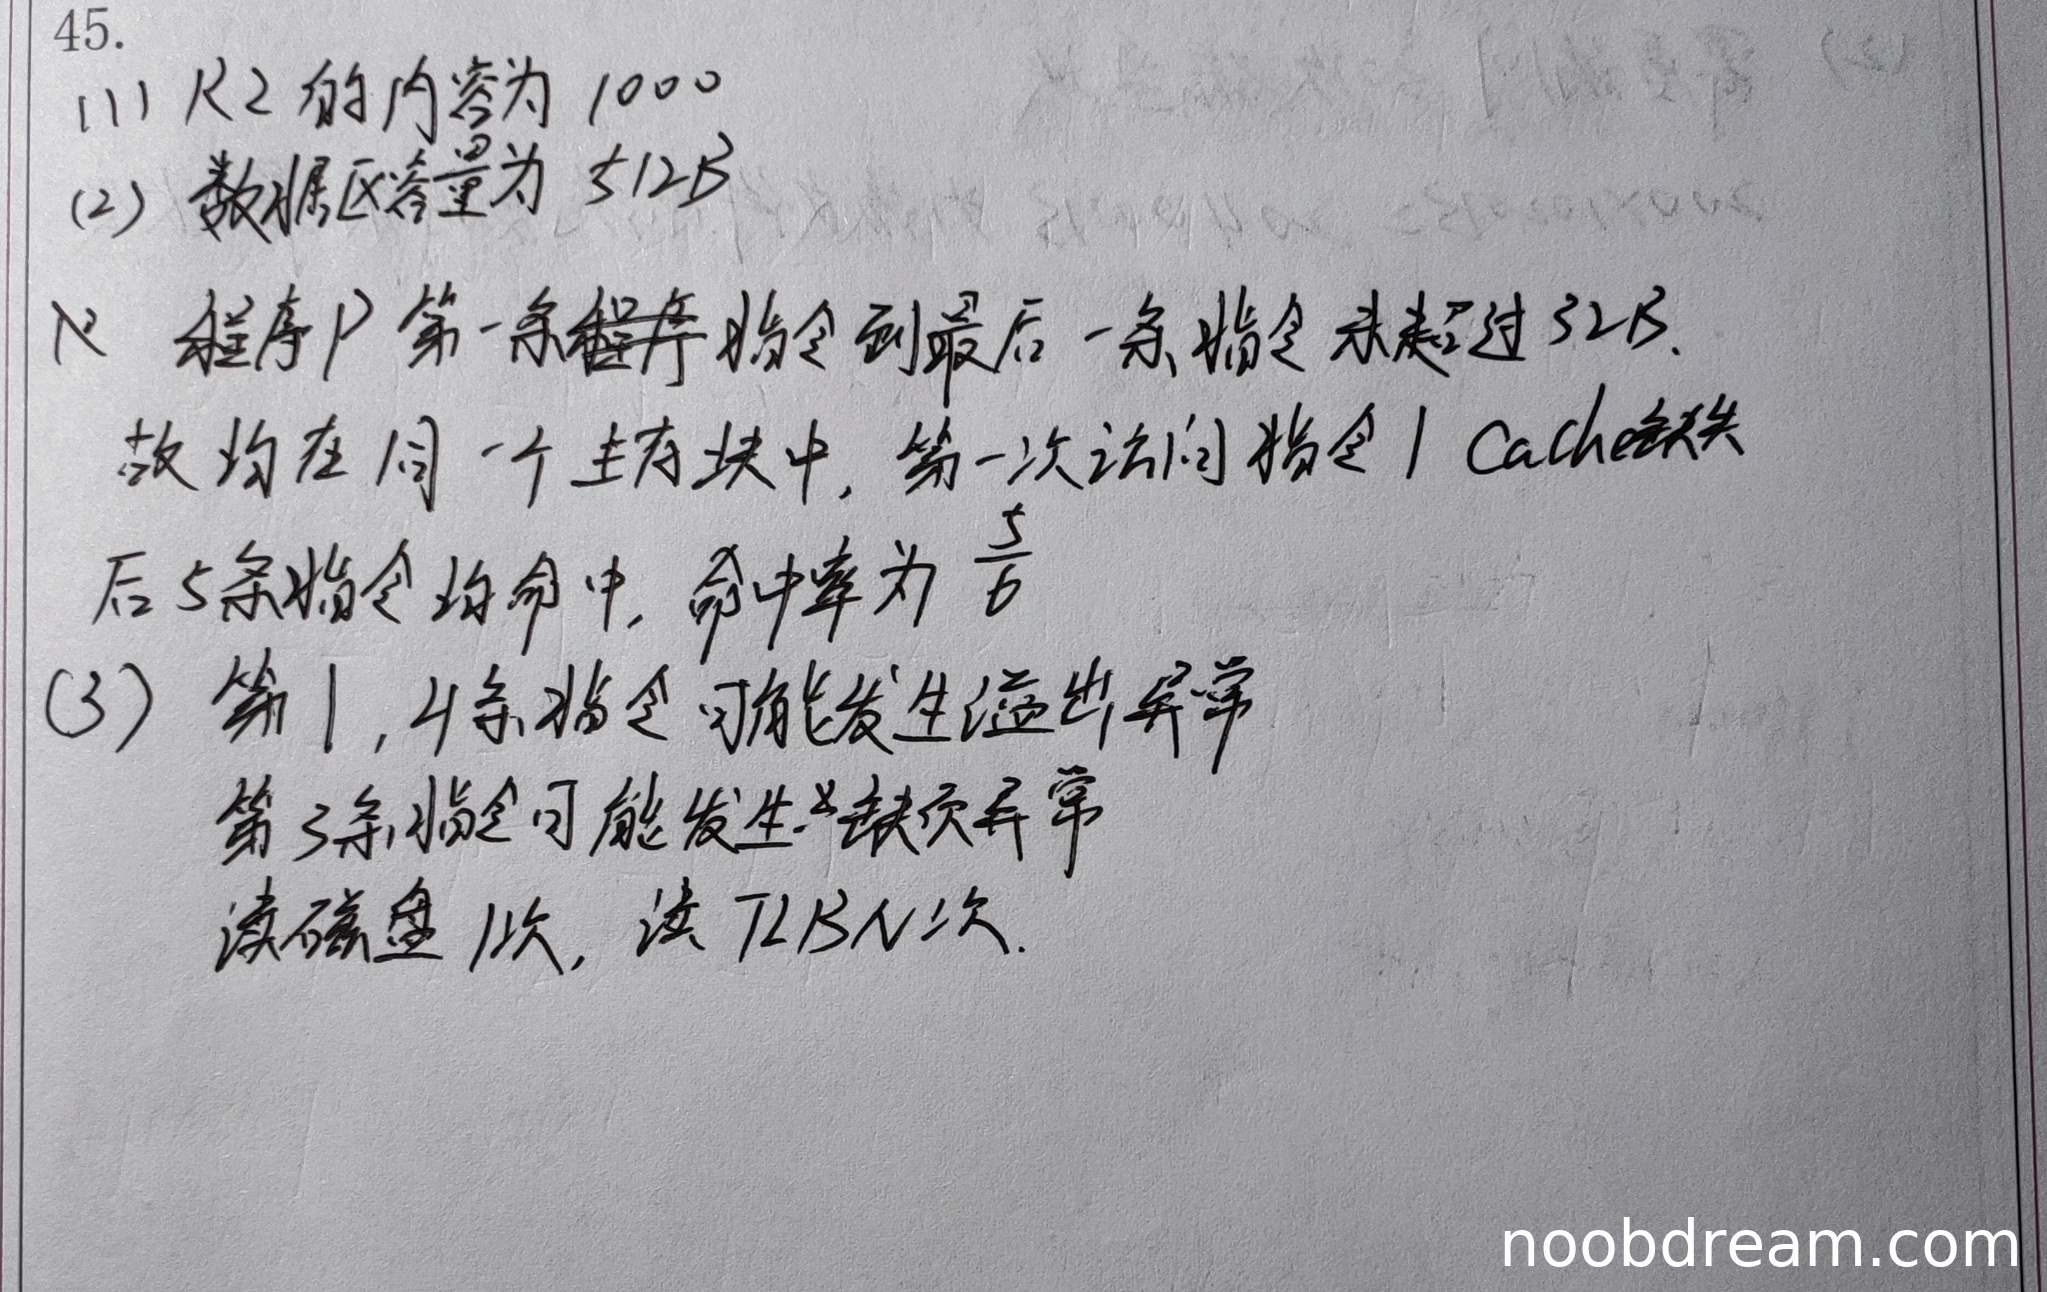 45.
(1) R2的内容为 1000
(2) 数据区容量为 512B
程序P第一条程序指令到最后一条指令未超过32B.
故均在同一个主存块中, 第一次访问指令1 Cache缺失
后5条指令均命中, 命中率为 5/6
(3) 第1,4条指令可能发生溢出异常
第3条指令可能发生缺页异常
读磁盘1次, 读TLBN次.
noobdream.com